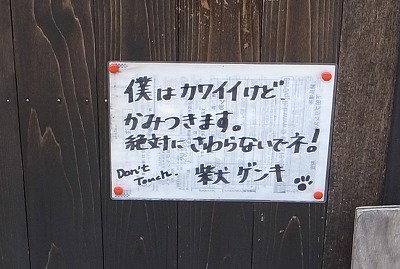 僕はカワイイけど、
かみつきます。
絶対にさわらないでネ!
Don't
Touch.
柴犬ゲンキ